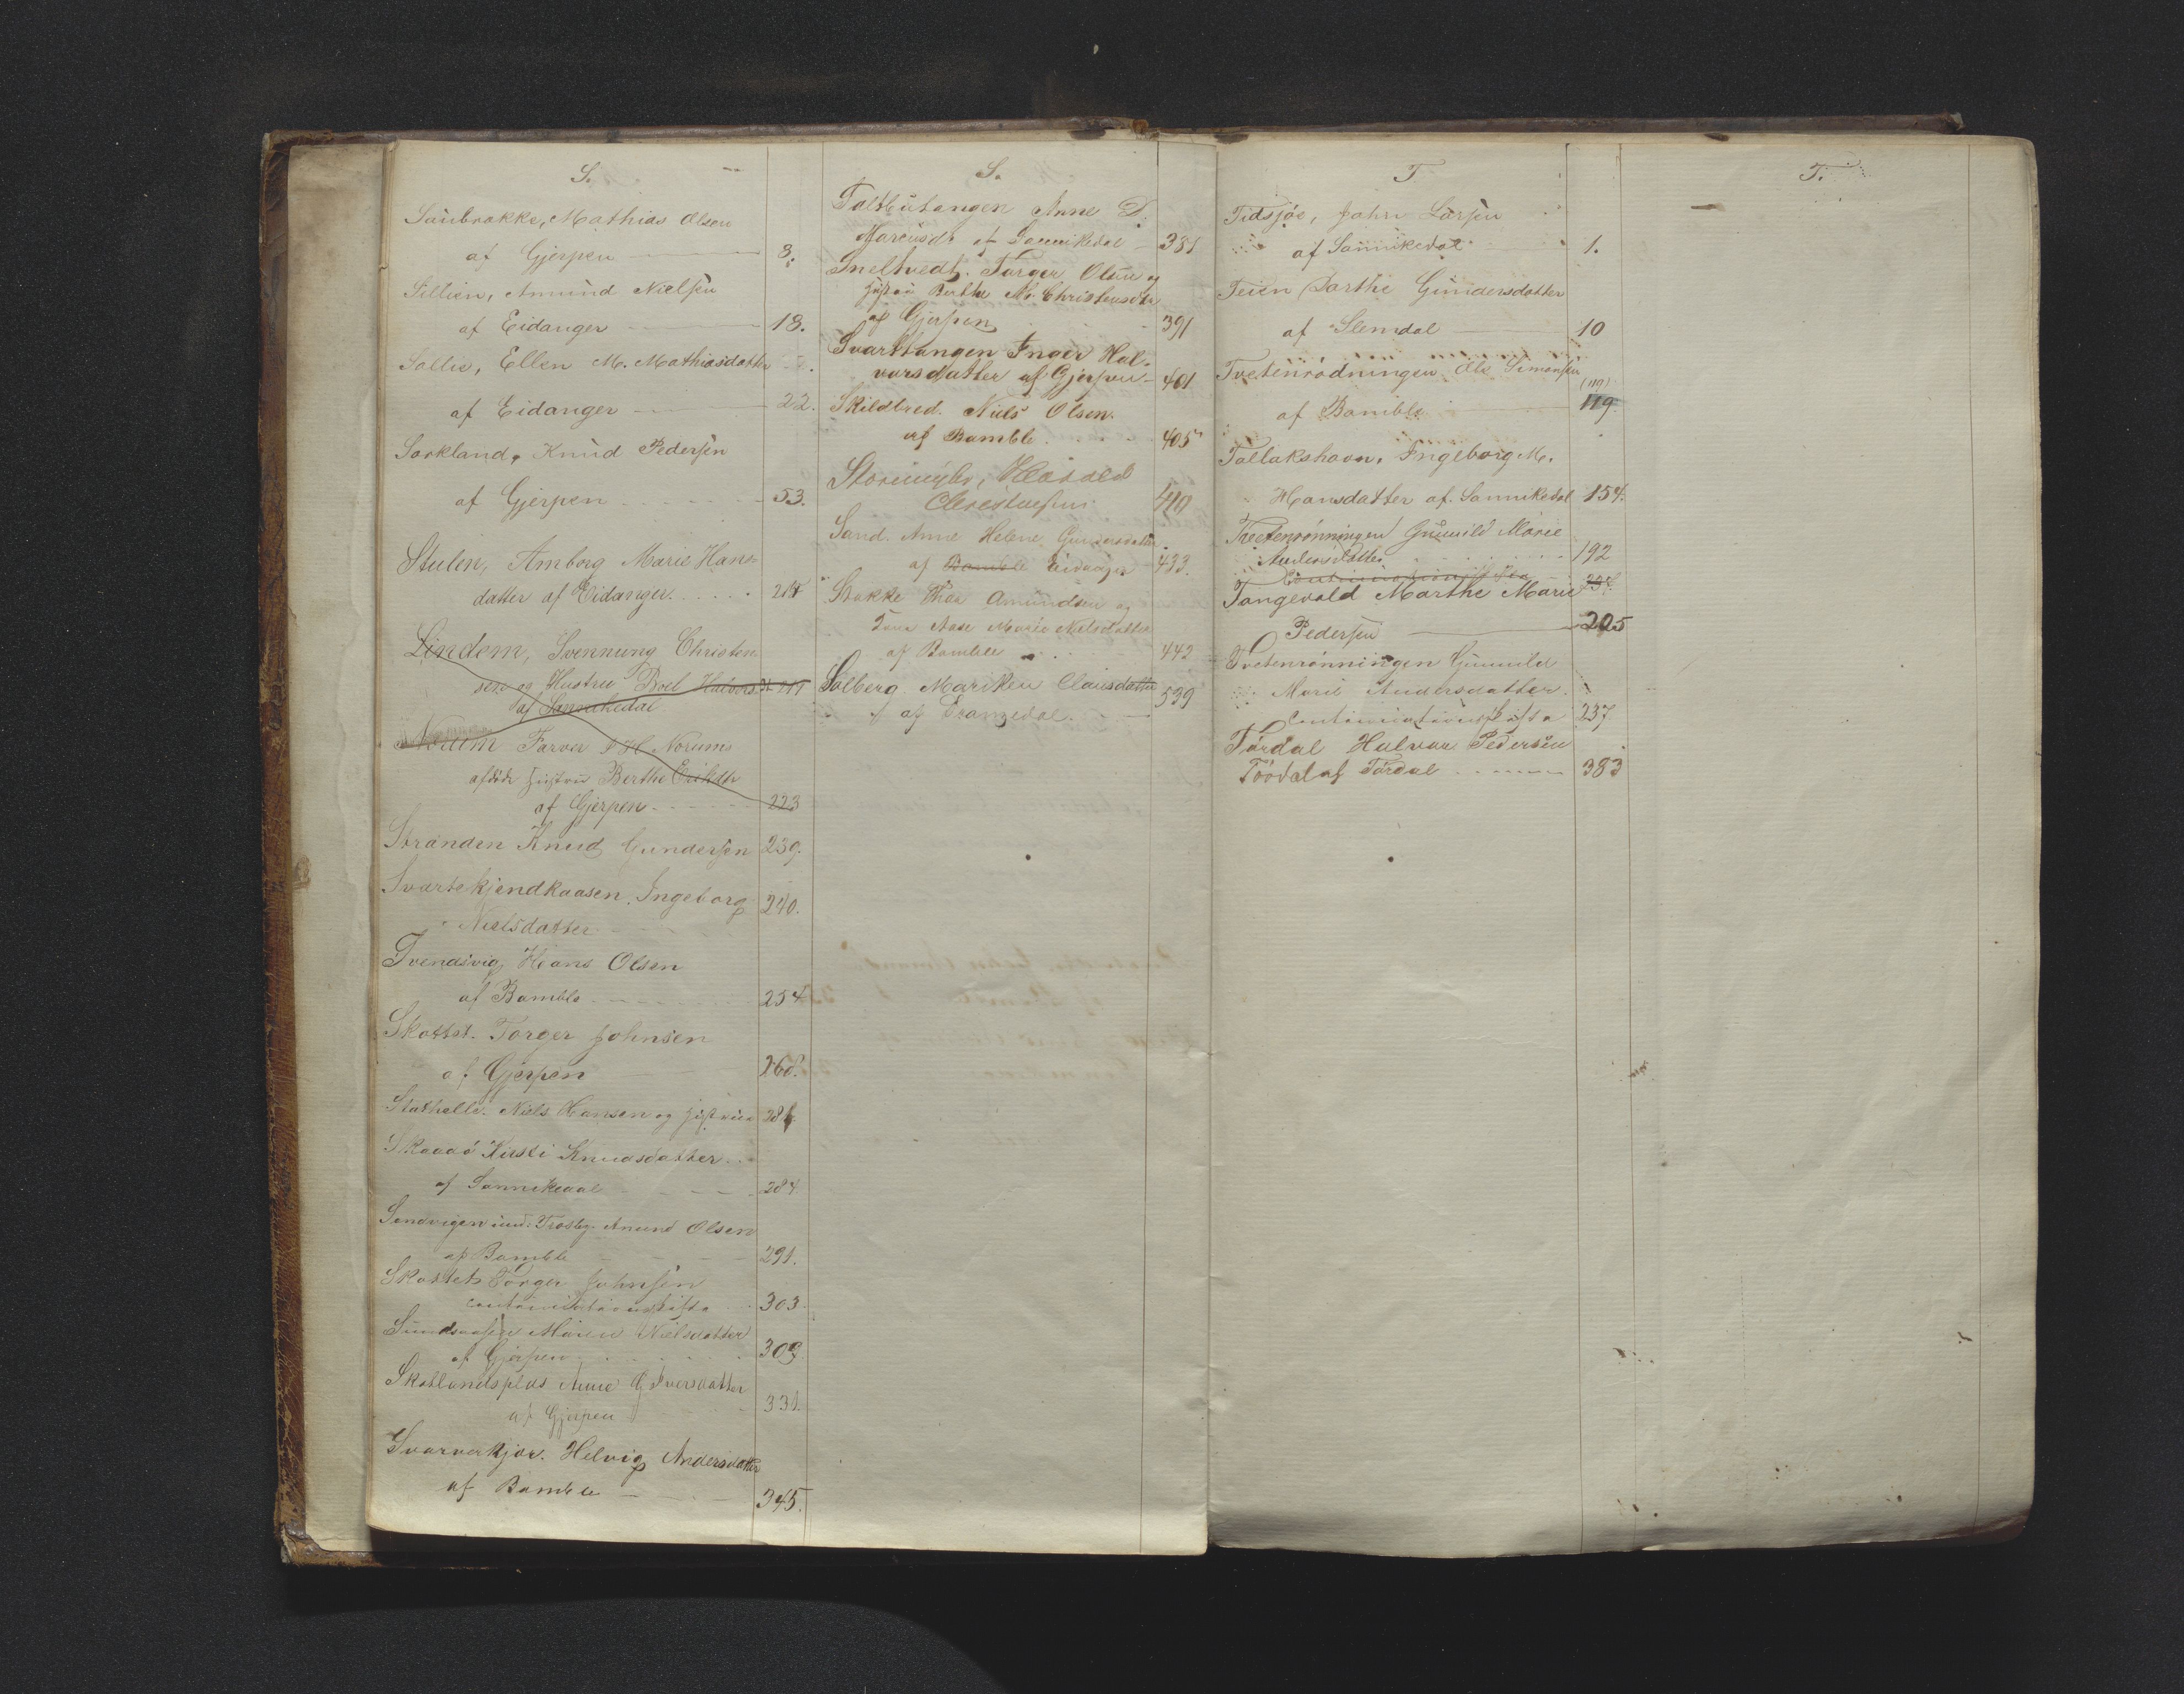 S.
Saubrakke, Mathias Olsen
af Gjerpen 8.
Sillien, Amund Nielsen
af Eidanger 18.
Sollie, Ellen M. Mathiasdatter
af Eidanger 22.
Sorkland, Knud Pedersen
af Gjerpen 53.
Stulen, Amborg Marie Hans-
datter af Eidanger. 217
Lindom, Svennung Christen
sen og Hustru Boel Halvorsd 217
af Sannikedal
Norum Farver Norums
afdøde Hustru Berthe Eriksdtr
af Gjerpen 223
Stranden Knud Gundersen 239.
Svartekjendkaasen. Ingeborg 240.
Nielsdatter
Svendsvig, Hans Olsen
af Bamble 254
Skottet. Torger Johnsen
af Gjerpen 268.
Stathelle. Niels Hansen og Hustrue 281
Skaadø Kirsti Knudsdatter
af Sannikedal 284.
Sendvigen und. Trosby Amund Olsen
af Bamble 291.
Skottet Torger Johnsen
continuationsskifte 303.
Sundsaasen Maren Nielsdatter
af Gjerpen 309.
Skotlandsplds Anne G Iversdatter
af Gjerpen 331.
Svarverkjær. Helvig Andersdatter
af Bamble 345.
S.
Saltbutangen Anne D.
Marcusdr af Sannikedal 381
Sneltvedt. Torger Olsen og
Hustru Berthe M. Christensdtr
af Gjerpen 391
Svarttangen Inger Hal-
vorsdatter af Gjerpen 401
Skildbred. Niels Olsen.
af Bamble. 405
Storemyhr, Harald
Christensen 410
Sand. Anne Helene Gundersdatter
af Bamble Eidanger 433.
Stokke Thor Amundsen og
Kone Aase Marie Nielsdatter
af Bamble 442
Solberg. Mariken Clausdatter 539
af Drangedal.
T
Tidsjøe, John Larsen
af Sannikedal 1.
Teien Dorthe Gundersdatter
af Slemdal 10
Tvetenrødningen Ole Simonsen
(119)
af Bamble 119
Tallakshavn, Ingeborg M.
Hansdatter af Sannikedal 154.
Tvetenrønningen Gunnild Marie
Andersdatter 192
Tangevald Marthe Marie
Pedersen 205
Tvetenrønningen Gunnild
Marie Andersdatter.
Continuationsskifte 237.
Tørdal Halvor Pedersen
Tørdal af Tørdal 383
T.